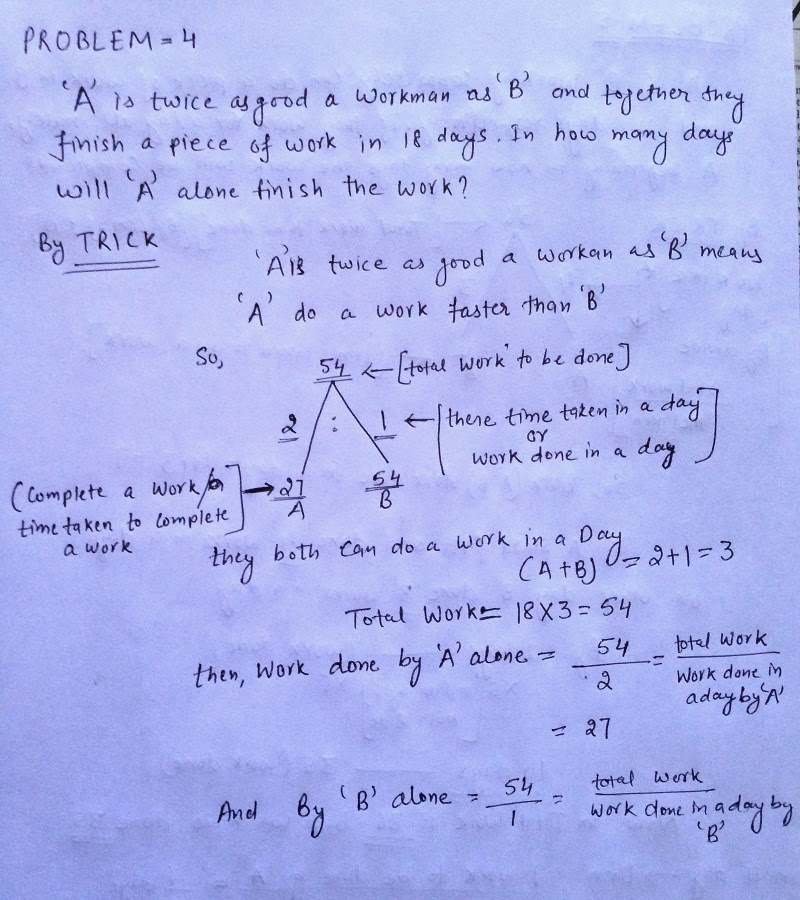 PROBLEM = 4
'A' is twice as good a workman as 'B' and together they
finish a piece of work in 18 days. In how many days
will 'A' alone finish the work?
By TRICK
'A' is twice as good a workan as 'B' means
'A' do a work faster than 'B'
So,
54 ← [total work to be done]
2 : 1 ← [there time taken in a day
or
work done in a day]
(Complete a work/or
time taken to complete
a work] → 27/A 54/B
they both can do a work in a Day
(A+B) = 2+1 = 3
Total Work = 18×3 = 54
then, Work done by 'A' alone = 54/2 = total work/Work done in a day by 'A'
= 27
And By 'B' alone = 54/1 = total work/work done in a day by 'B'